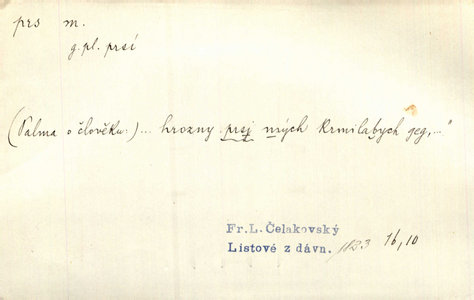 prs m.
g. pl. prsí
(Palma o člověku:)... hrozny prsj mých krmilabych geg,..."
Fr. L. Čelakovský
Listové z dávn. 1823 16,10